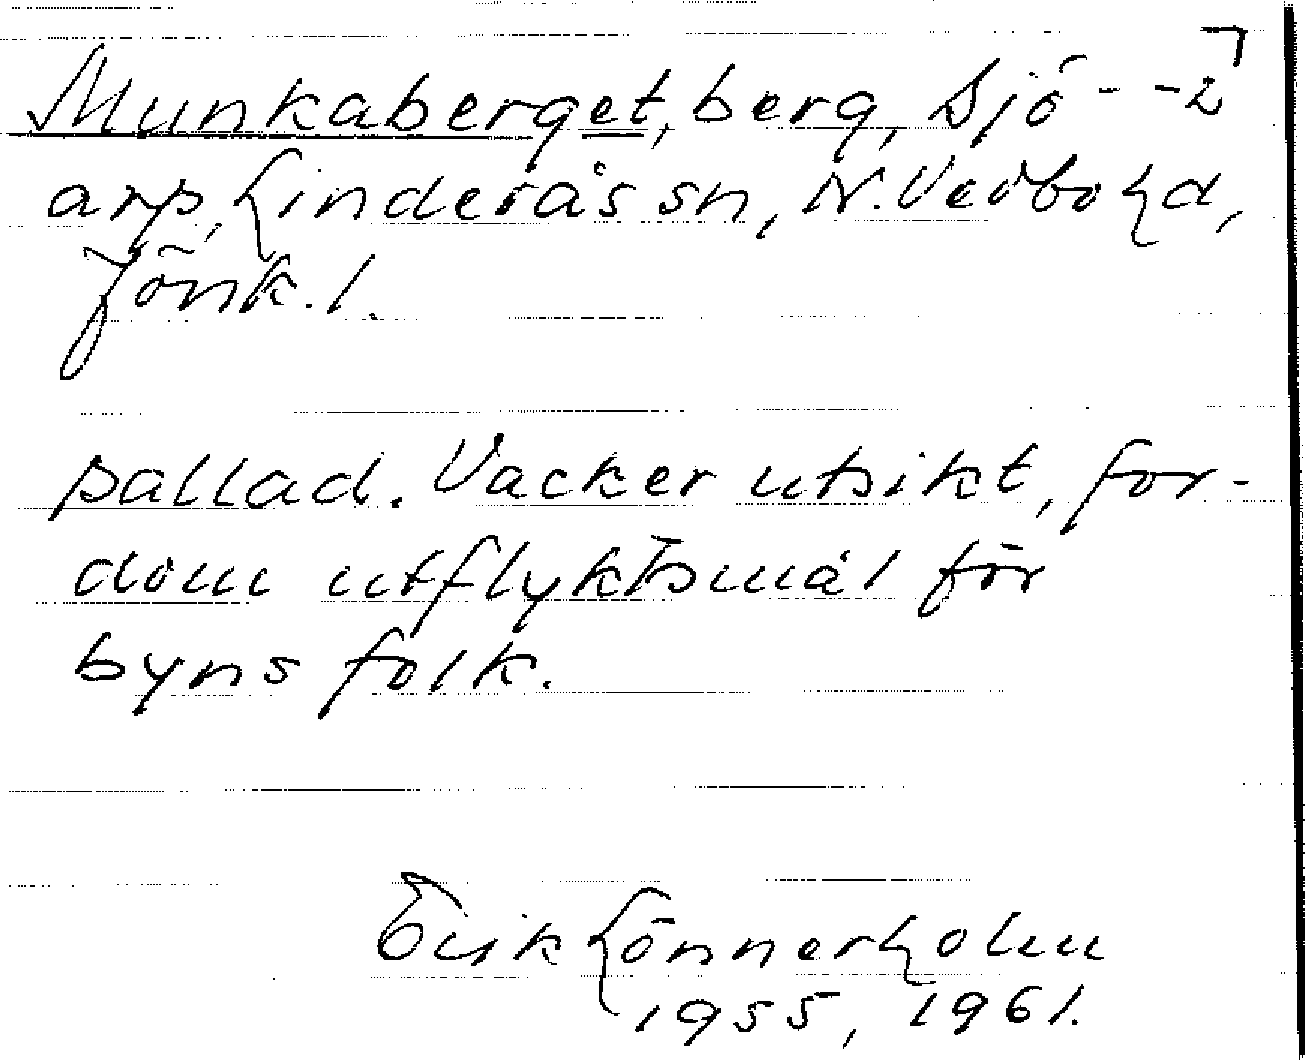 Munkaberget, berg, Sjö--2
arp, Linderås sn, N. Vedbo hd,
Jönk. l.
pallad. Vacker utsikt, for-
dom utflyktsmål för
byns folk.
Erik Lönnerholm
1955, 1961.